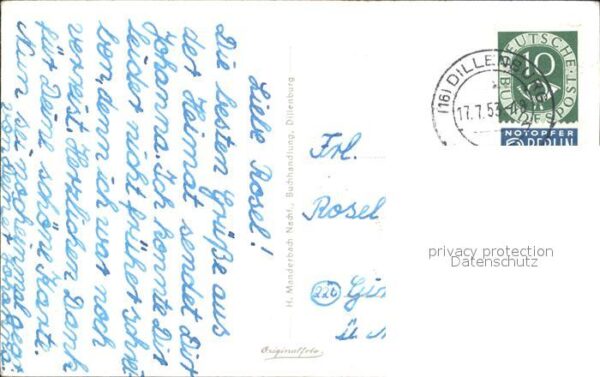 Liebe Rosel!
Die besten Grüße aus
der Heimat sendet Dir
Johanna. Ich konnte Dir
leider nicht früher schrei
ben, denn ich war noch
verreist. Herzlichen Dank
für Deine schöne Karte.
Nun sei nocheinmal gegr.
von Deiner Johanna.
H. Manderbach Nachf., Buchhandlung, Dillenburg
Originalfoto
Frl.
Rosel
(22b)
ü.
(16) DILLENBURG
17.7.53
DEUTSCHE
BUNDESPOST
10
NOTOPFER
2 BERLIN
privacy protection
Datenschutz